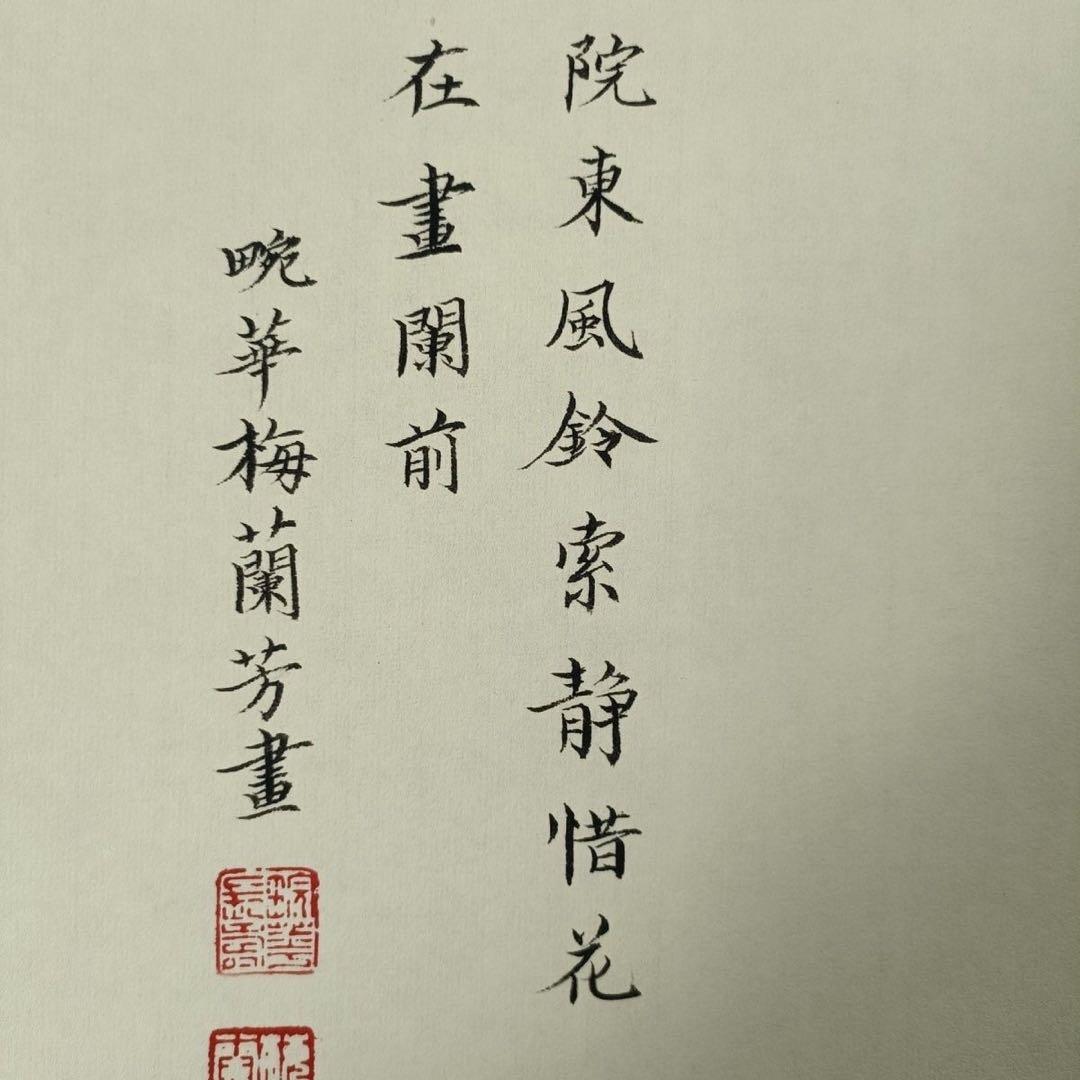 院東風鈴索静惜花
在畫闌前
畹華梅蘭芳畫